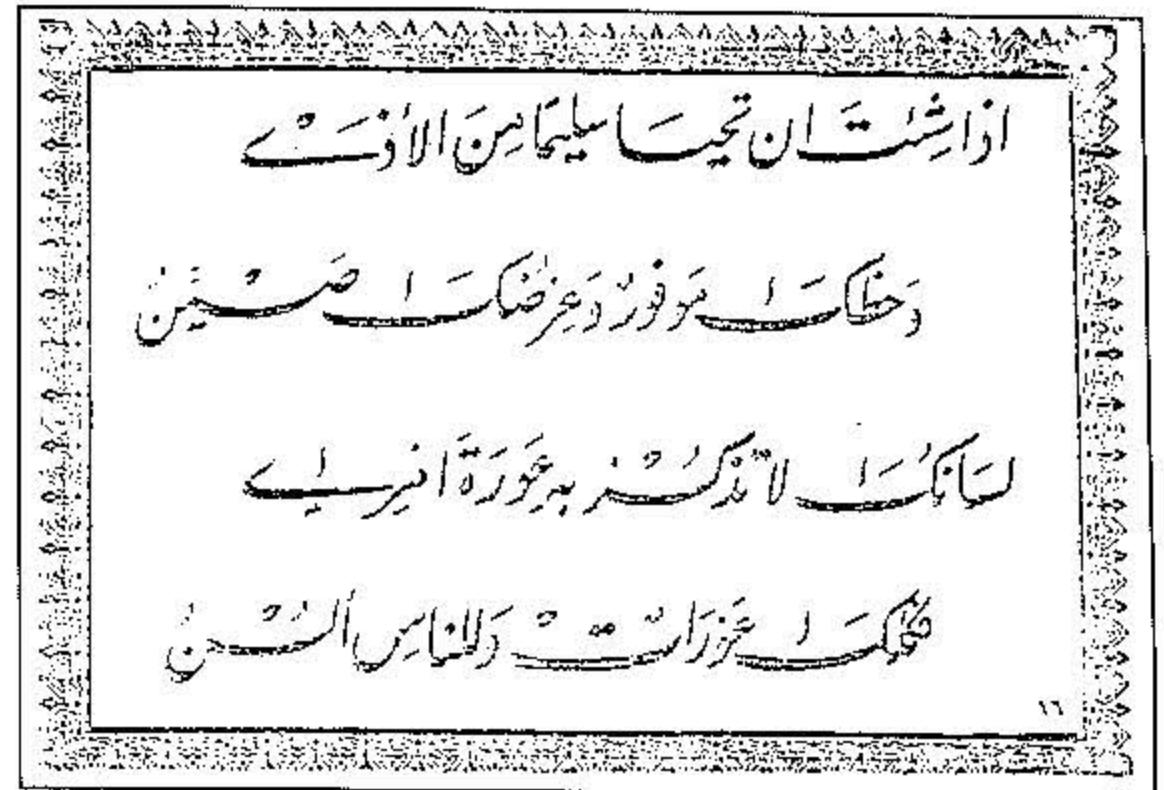 اذا شئتَ ان تحيا سليمًا مِنَ الأذَى
وَحظكَ موفورٌ وَعِرضكَ صَيّنُ
لسَانكَ لا تذكُرْ بهِ عَورَةَ امرئٍ
فكلكَ عَورَاتٌ وَللناسِ ألسُنُ
١٦